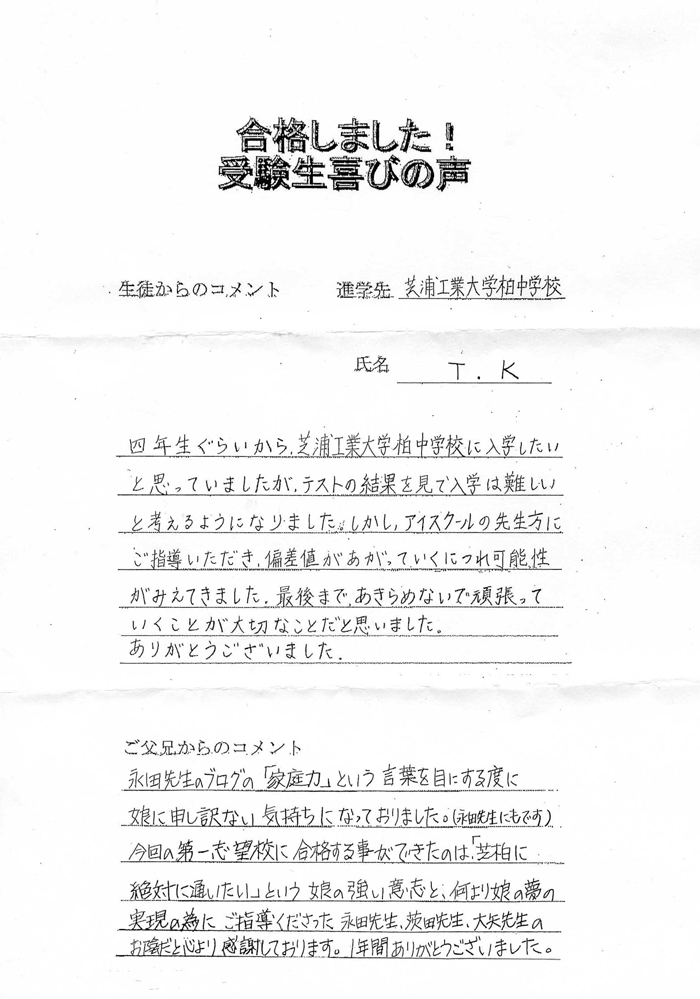 合格しました！
受験生喜びの声
生徒からのコメント 進学先 芝浦工業大学柏中学校
氏名 T.K
四年生ぐらいから、芝浦工業大学柏中学校に入学したい
と思っていましたが、テストの結果を見て入学は難しい
と考えるようになりました。しかし、アイスクールの先生方に
ご指導いただき、偏差値があがっていくにつれ可能性
がみえてきました。最後まであきらめないで頑張って
いくことが大切なことだと思いました。
ありがとうございました。
ご父兄からのコメント
永田先生のブログの「家庭力」という言葉を目にする度に
娘に申し訳ない気持ちになっておりました。(永田先生にもです)
今回の第一志望校に合格する事ができたのは、「芝柏に
絶対に通いたい」という娘の強い意志と、何より娘の夢の
実現の為にご指導くださった永田先生、茨田先生、大矢先生の
お陰だと心より感謝しております。1年間ありがとうございました。